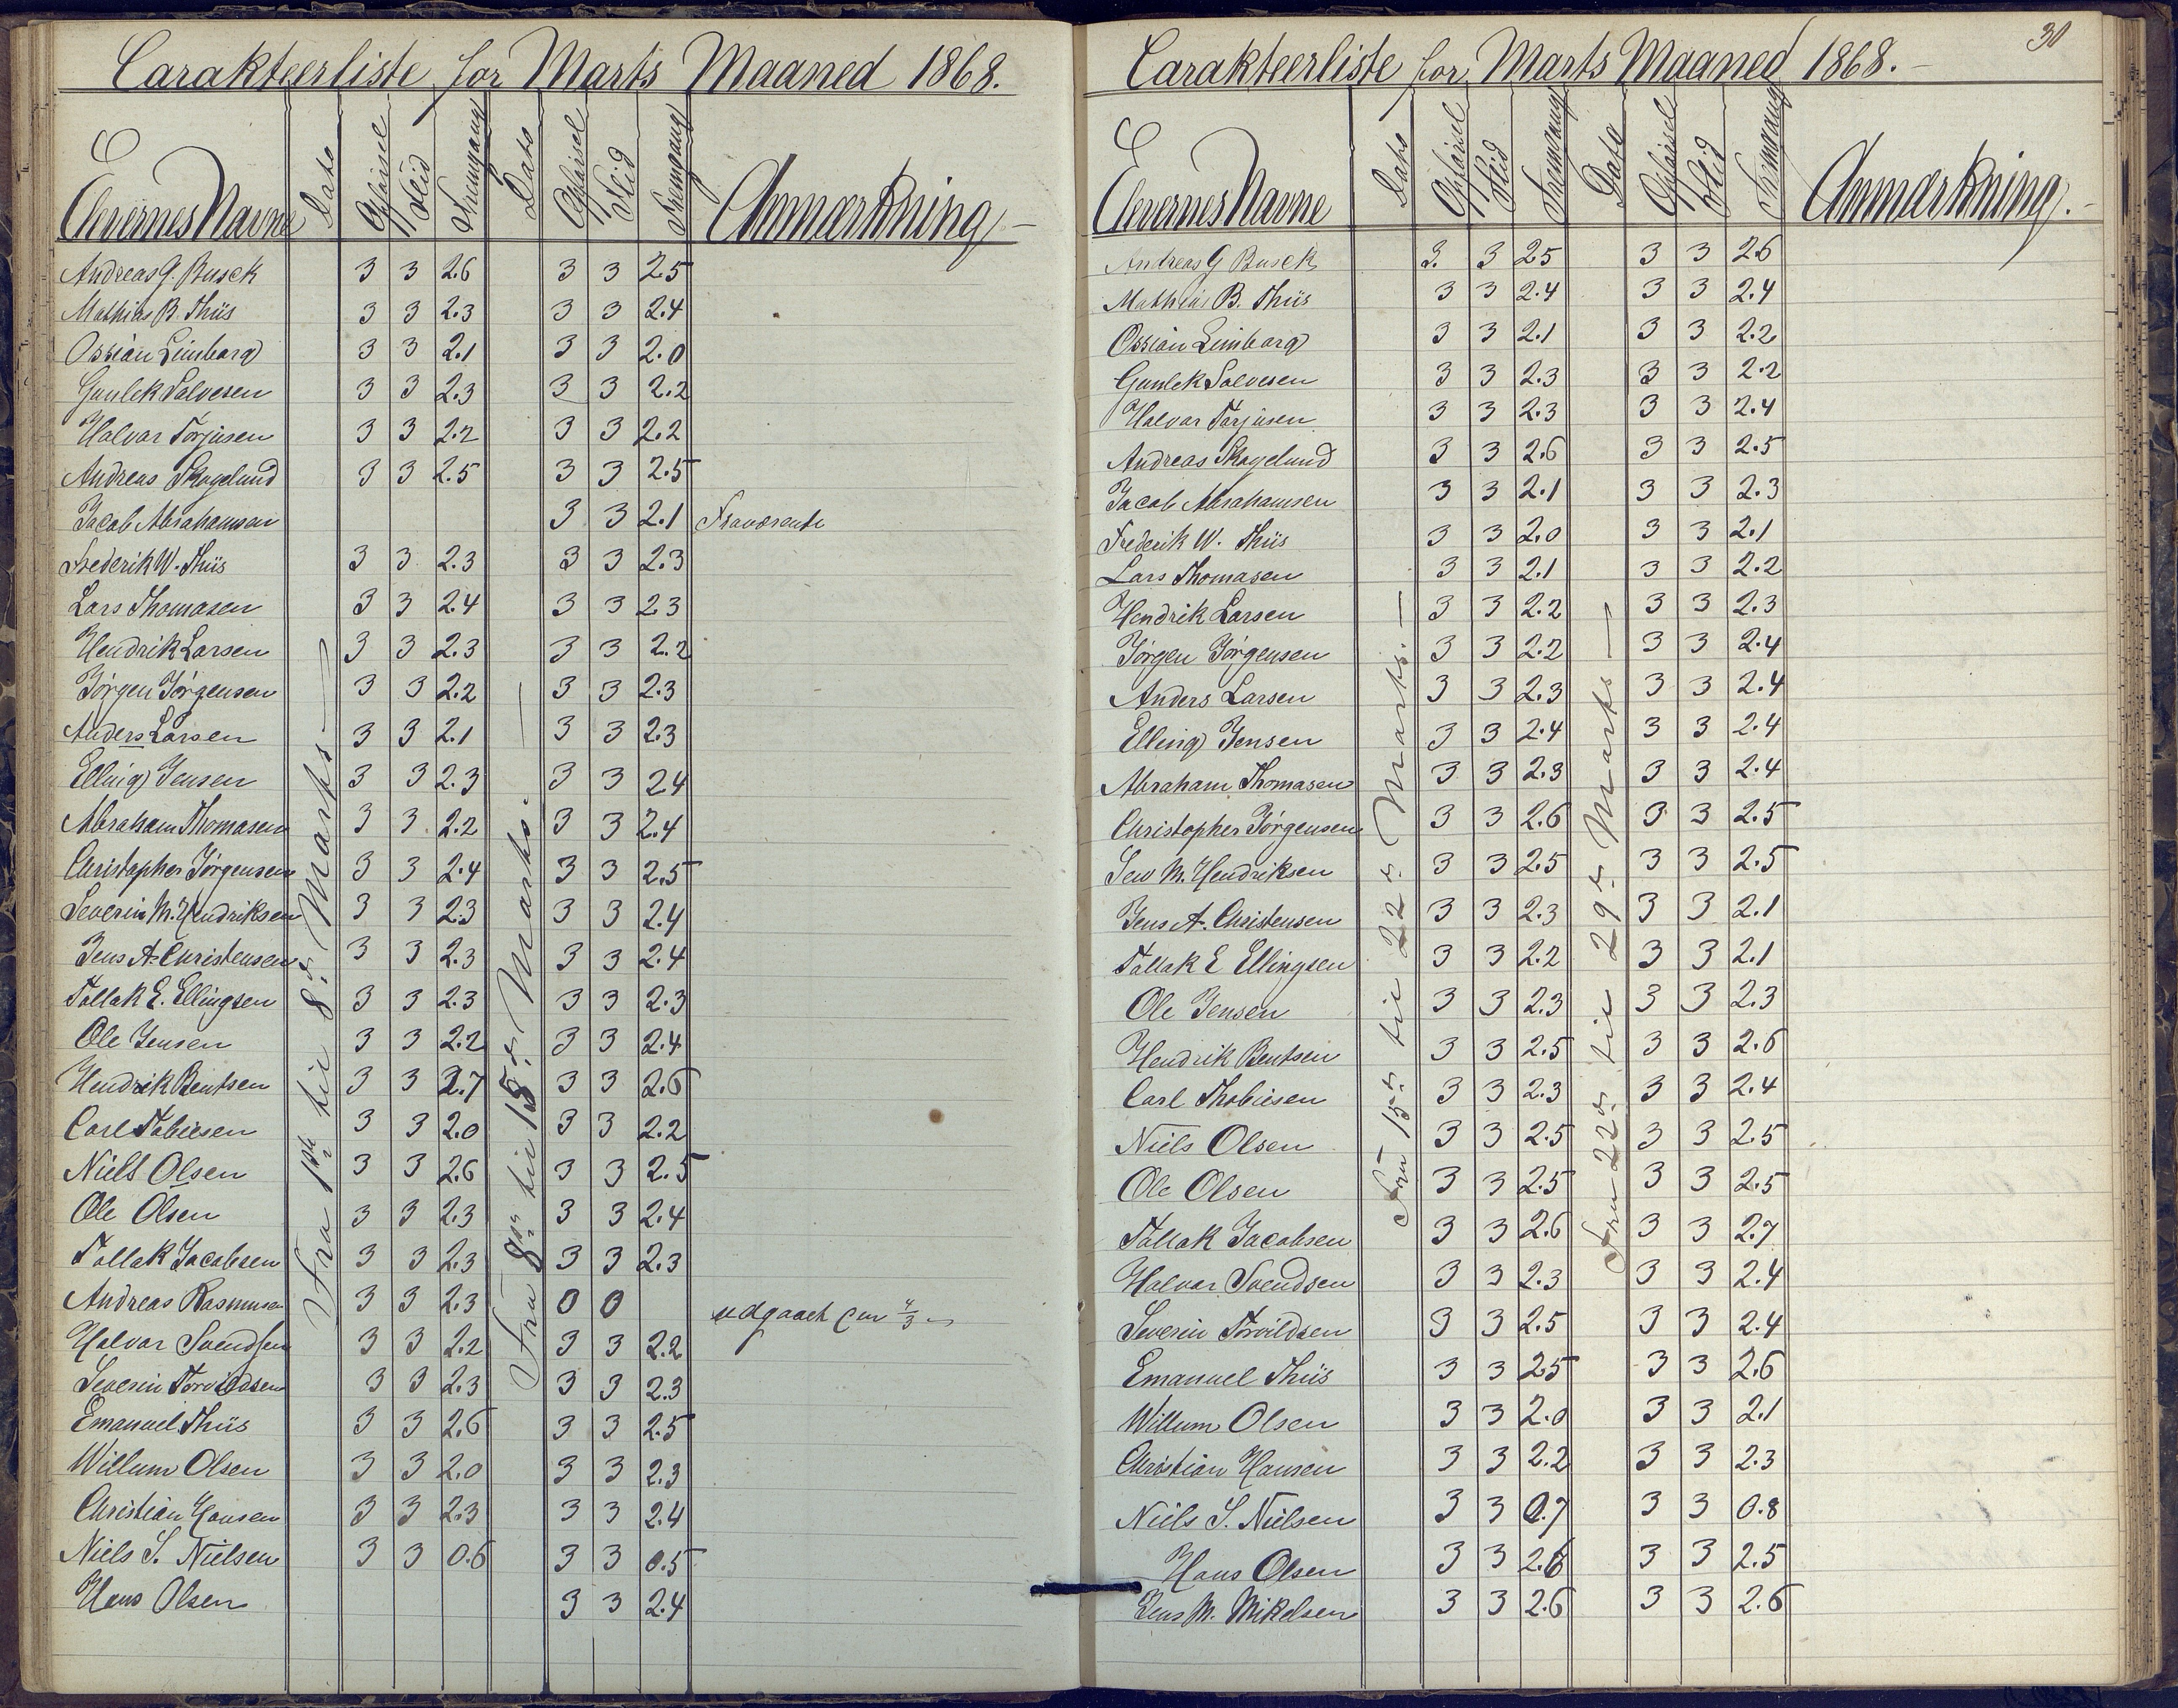 Carakteerliste for Marts Maaned 1868.
Elevernes Navne Dato Opførsel Flid Fremgang Dato Opførsel Flid Fremgang Anmærkning
Fra 1ste til 8de Marts
Fra 8de til 15de Marts.
Andreas G. Busck 3 3 2.6 3 3 2.5
Mathias B. Thiis 3 3 2.3 3 3 2.4
Ossian Limborg 3 3 2.1 3 3 2.0
Gunlek Salvesen 3 3 2.3 3 3 2.2
Halvar Torjusen 3 3 2.2 3 3 2.2
Andreas Skogelund 3 3 2.5 3 3 2.5
Jacob Abrahamsen 3 3 2.1 Fraværende
Frederik W. Thiis 3 3 2.3 3 3 2.3
Lars Thomasen 3 3 2.4 3 3 2.3
Hendrik Larsen 3 3 2.3 3 3 2.2
Jørgen Jørgensen 3 3 2.2 3 3 2.3
Anders Larsen 3 3 2.1 3 3 2.3
Elling Jensen 3 3 2.3 3 3 2.4
Abraham Thomasen 3 3 2.2 3 3 2.4
Christopher Jørgensen 3 3 2.4 3 3 2.5
Severin M. Hendriksen 3 3 2.3 3 3 2.4
Jens A. Christensen 3 3 2.3 3 3 2.4
Tallak E. Ellingsen 3 3 2.3 3 3 2.3
Ole Jensen 3 3 2.2 3 3 2.4
Hendrik Bentsen 3 3 2.7 3 3 2.6
Carl Tobiesen 3 3 2.0 3 3 2.2
Niels Olsen 3 3 2.6 3 3 2.5
Ole Olsen 3 3 2.3 3 3 2.4
Tallak Jacobsen 3 3 2.3 3 3 2.3
Andreas Rasmusen 3 3 2.3 0 0 udgaaet 4/3
Halvar Svendsen 3 3 2.2 3 3 2.2
Severin Torvildsen 3 3 2.3 3 3 2.3
Emanuel Thiis 3 3 2.6 3 3 2.5
Willum Olsen 3 3 2.0 3 3 2.3
Christian Hansen 3 3 2.3 3 3 2.4
Niels S. Nielsen 3 3 0.6 3 3 0.5
Hans Olsen 3 3 2.4
30
Carakteerliste for Marts Maaned 1868.
Elevernes Navne Dato Opførsel Flid Fremgang Dato Opførsel Flid Fremgang Anmærkning.
Fra 15de til 22de Marts.
Fra 22de til 29de Marts
Andreas G Busck 3. 3 2.5 3 3 2.6
Mathias B. Thiis 3 3 2.4 3 3 2.4
Ossian Limborg 3 3 2.1 3 3 2.2
Gunlek Salvesen 3 3 2.3 3 3 2.2
Halvar Torjusen 3 3 2.3 3 3 2.4
Andreas Skogelund 3 3 2.6 3 3 2.5
Jacob Abrahamsen 3 3 2.1 3 3 2.3
Frederik W. Thiis 3 3 2.0 3 3 2.1
Lars Thomasen 3 3 2.1 3 3 2.2
Hendrik Larsen 3 3 2.2 3 3 2.3
Jørgen Jørgensen 3 3 2.2 3 3 2.4
Anders Larsen 3 3 2.3 3 3 2.4
Elling Jensen 3 3 2.4 3 3 2.4
Abraham Thomasen 3 3 2.3 3 3 2.4
Christopher Jørgensen 3 3 2.6 3 3 2.5
Sew M. Hendriksen 3 3 2.5 3 3 2.5
Jens A. Christensen 3 3 2.3 3 3 2.1
Tallak E Ellingsen 3 3 2.2 3 3 2.1
Ole Jensen 3 3 2.3 3 3 2.3
Hendrik Bentsen 3 3 2.5 3 3 2.6
Carl Thobiesen 3 3 2.3 3 3 2.4
Niels Olsen 3 3 2.5 3 3 2.5
Ole Olsen 3 3 2.5 3 3 2.5
Tallak Jacobsen 3 3 2.6 3 3 2.7
Halvar Svendsen 3 3 2.3 3 3 2.4
Severin Torvildsen 3 3 2.5 3 3 2.4
Emanuel Thiis 3 3 2.5 3 3 2.6
Willum Olsen 3 3 2.0 3 3 2.1
Christian Hansen 3 3 2.2 3 3 2.3
Niels S. Nielsen 3 3 0.7 3 3 0.8
Hans Olsen 3 3 2.6 3 3 2.5
Jens M. Mikelsen 3 3 2.6 3 3 2.6